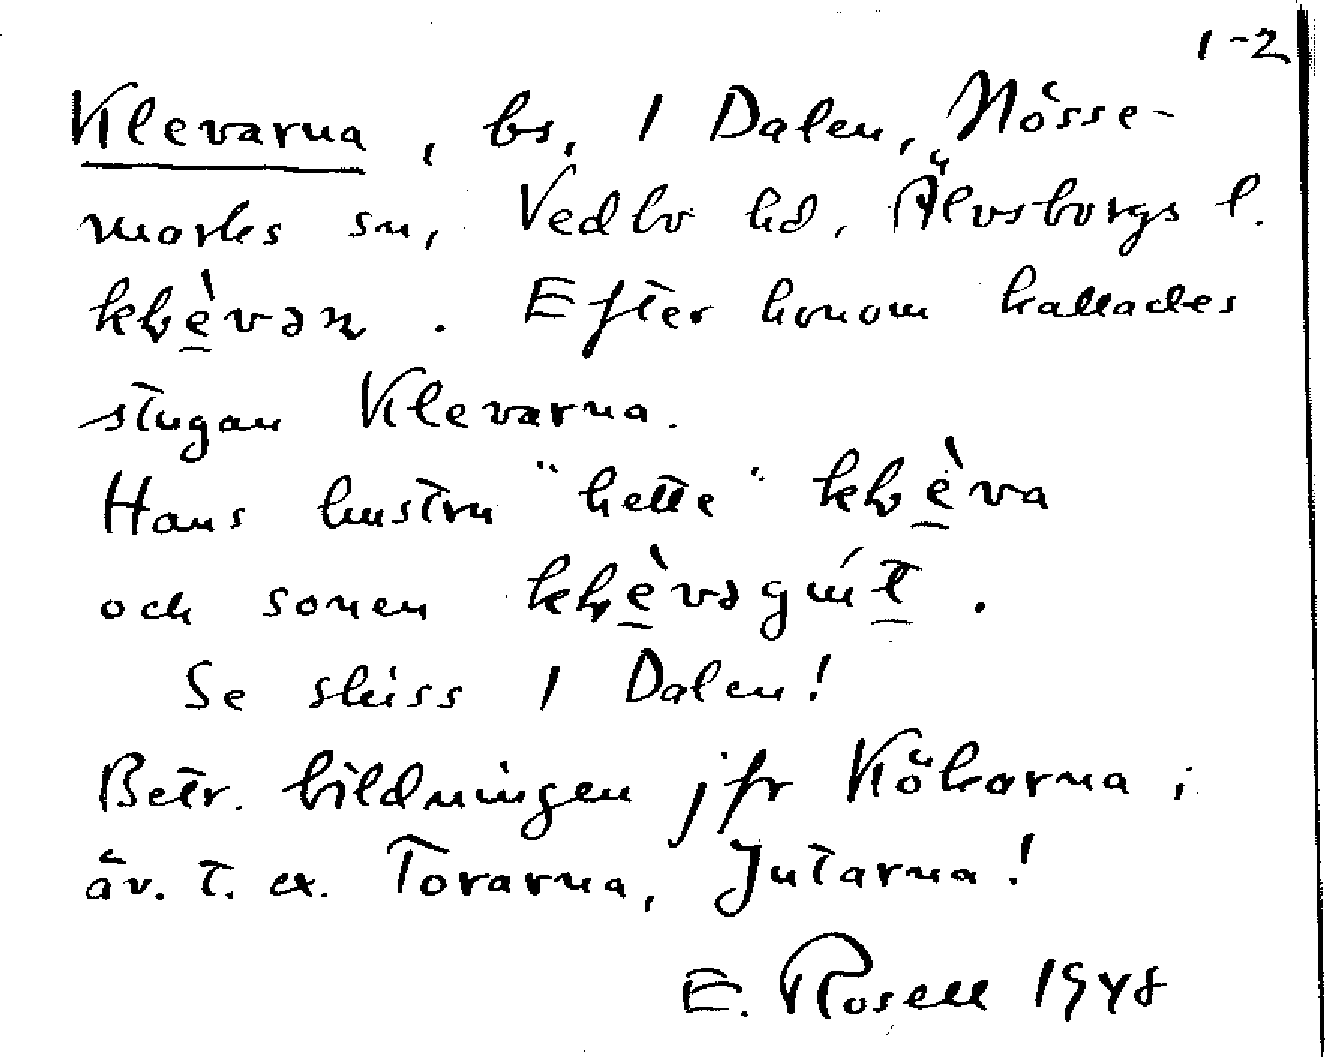 1-2
Klevarna, bs, 1 Dalen, Nösse-
marks sn, Vedbo hd, Älvsborgs l.
. Efter honom kallades
stugan Klevarna.
Hans hustru "hette"
och sonen .
Se skiss 1 Dalen!
Betr. bildningen jfr Kökarna;
äv. t. ex. Torarna, Jutarna!
E. Rosell 1948